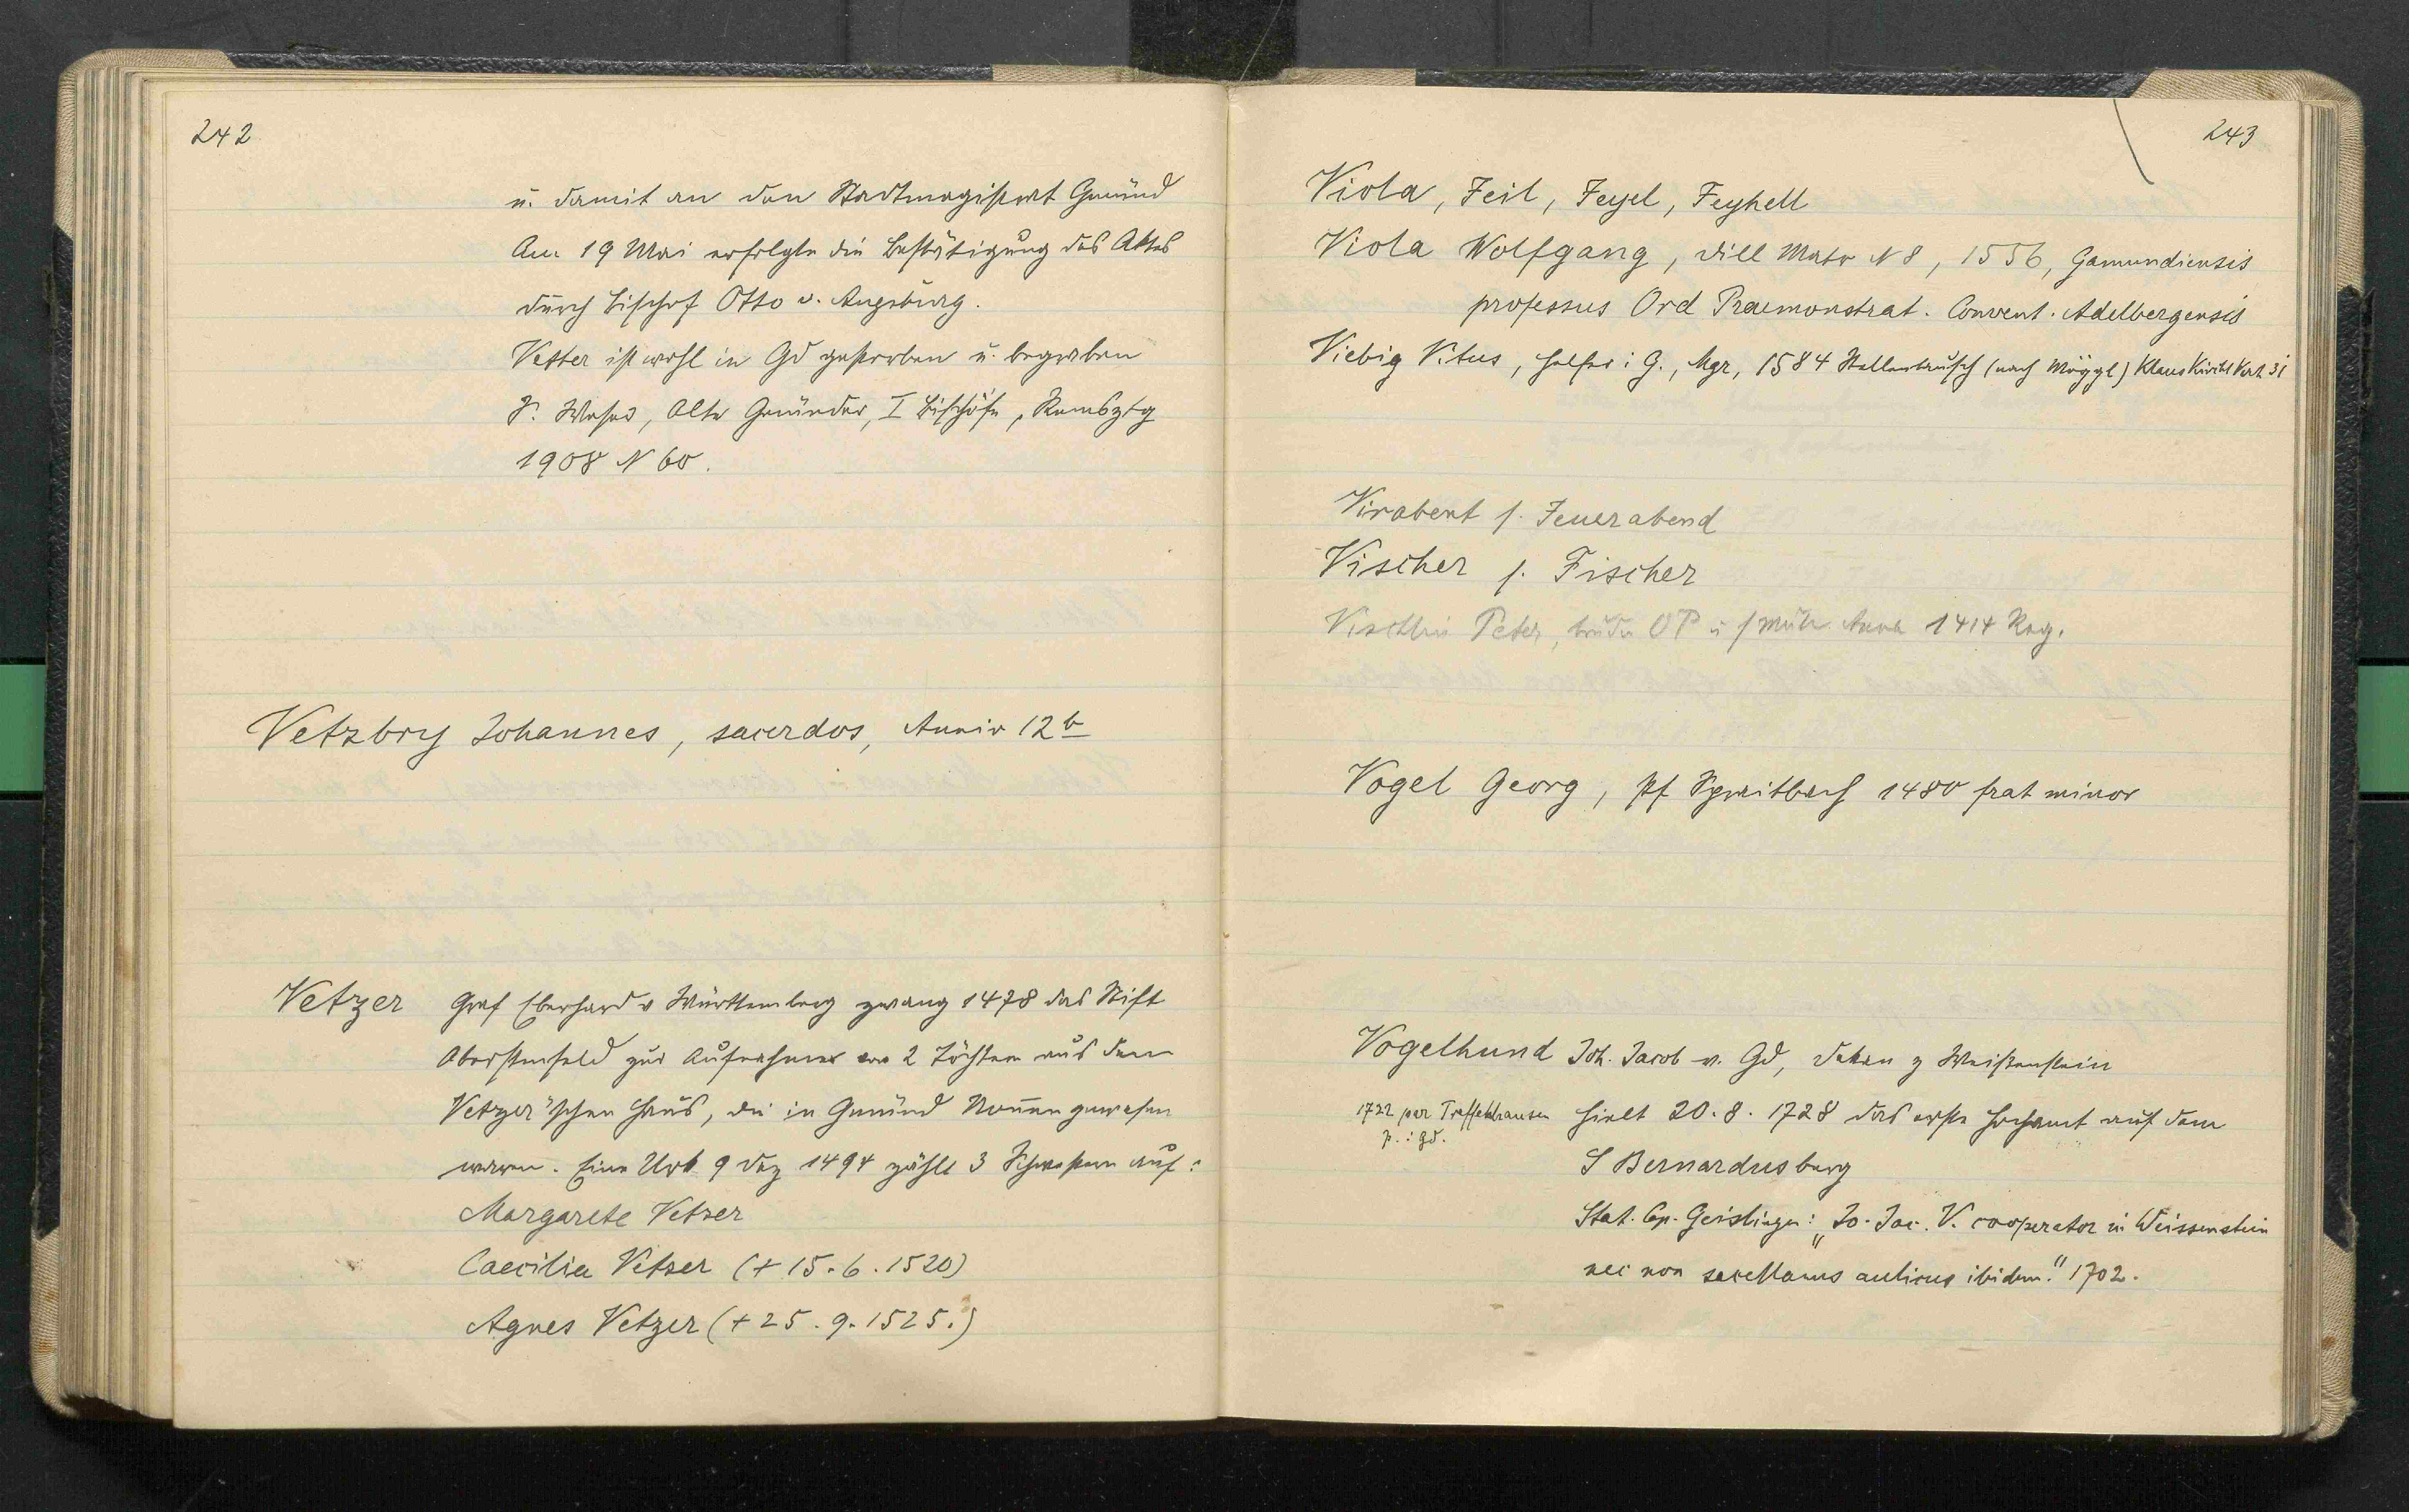 242
u. damit an den Stadtmagistrat Gmünd
Am 19 Mai erfolgte die Bestätigung des Aktes
durch Bischof Otto v. Augsburg.
Vetter ist wohl in Gd gestorben u. begraben
S. Weser, Alte Gmünder, I Bischöfe, Remsztg
1908 N 60.
Vetzbry Johannes, sacerdos, Anniv 12 b
Vetzer Graf Eberhard v Württemberg zwang 1478 das Stift
Oberstenfeld zur Aufnahme von 2 Töchtern aus dem
Vetzer'schen Haus, die in Gmünd Nonnen gewesen
waren. Eine Urk 9 Dez 1494 zählt 3 Schwestern auf:
Margarete Vetzer
Caecilia Vetzer (+ 15.6.1520)
Agnes Vetzer (+ 25.9.1525.)
243
Viola, Feil, Feyel, Feyhell
Viola Wolfgang, Dill Matr N 8, 1556, Gamundiensis
professus Ord Praemonstrat. Convent. Adelbergensis
Viebig Vitus, Helfer i G., Mgr, 1584 Stellentausch (nach Möggl) Klaus Kirchl Verh 31
Virabent s. Feuerabend
Vischer s. Fischer
Peter, Bruder OP u s Mutter Anna 1414 Reg.
Vogel Georg, Pf Spraitbach 1480 frat minor
Vogelhund Joh. Jacob v. Gd, Dekan z Weißenstein
1722 par Treffelhausen hielt 20.8.1728 das erste Hochamt auf dem
p. i Gd.
S Bernardusberg
Stat. Cap. Geislingen: "Jo. Jac. V. cooperator in Weissenstein
nec non sacellanus aulicus ibidem." 1702.